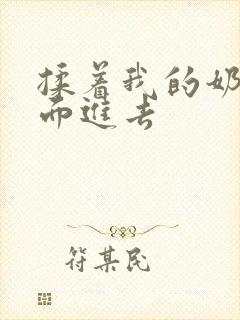 揉着我的奶
而进去
符某民